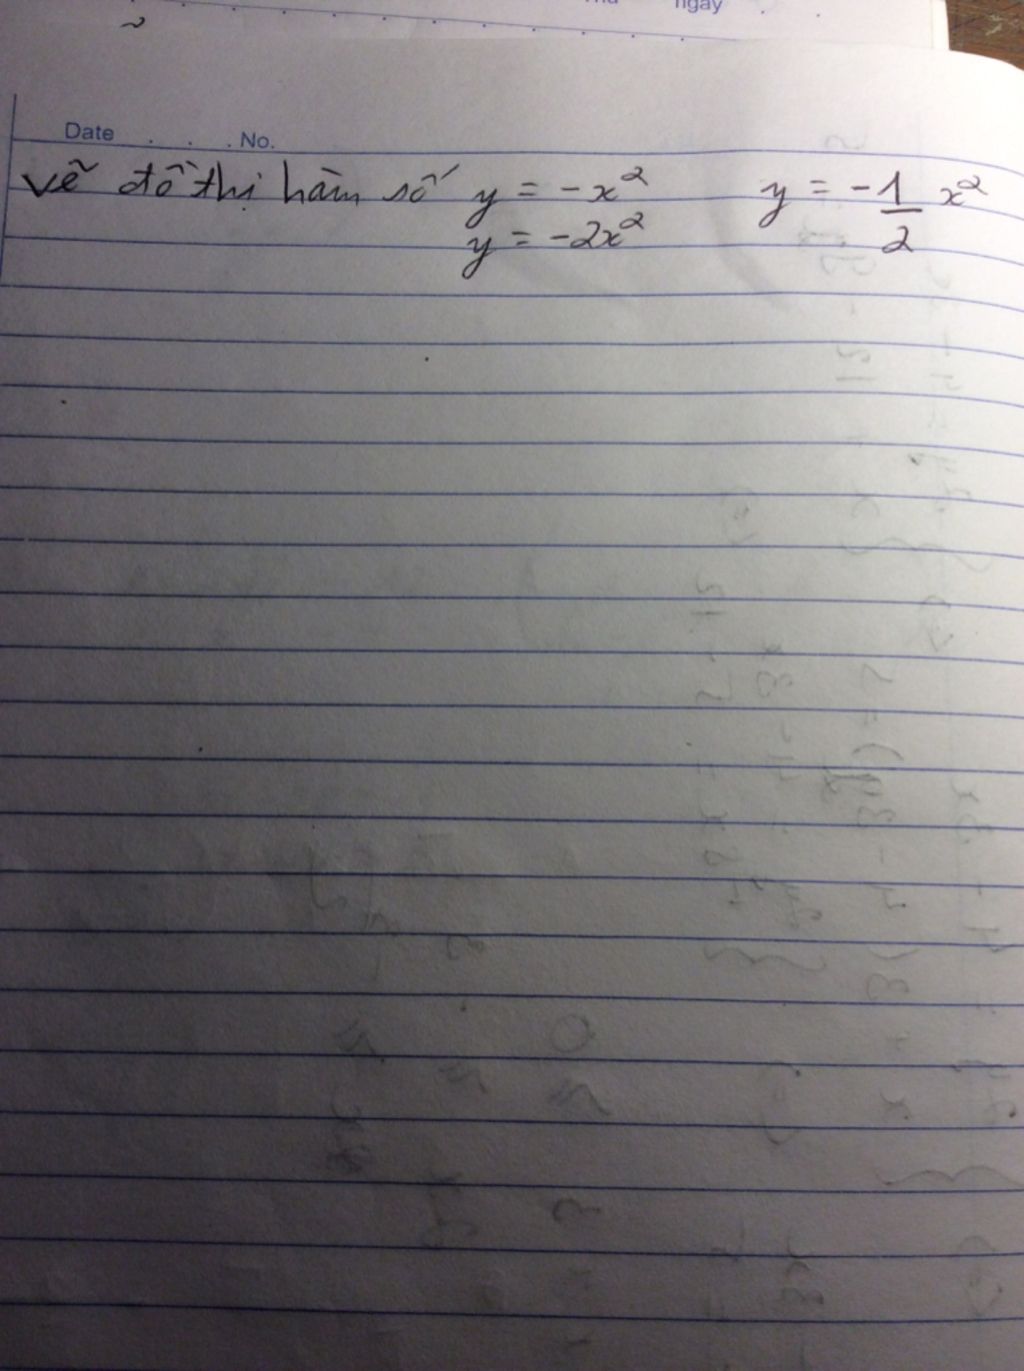 ngày
Date . . . No.
vẽ đồ thị hàm số y = -x² y = -1/2 x²
y = -2x²